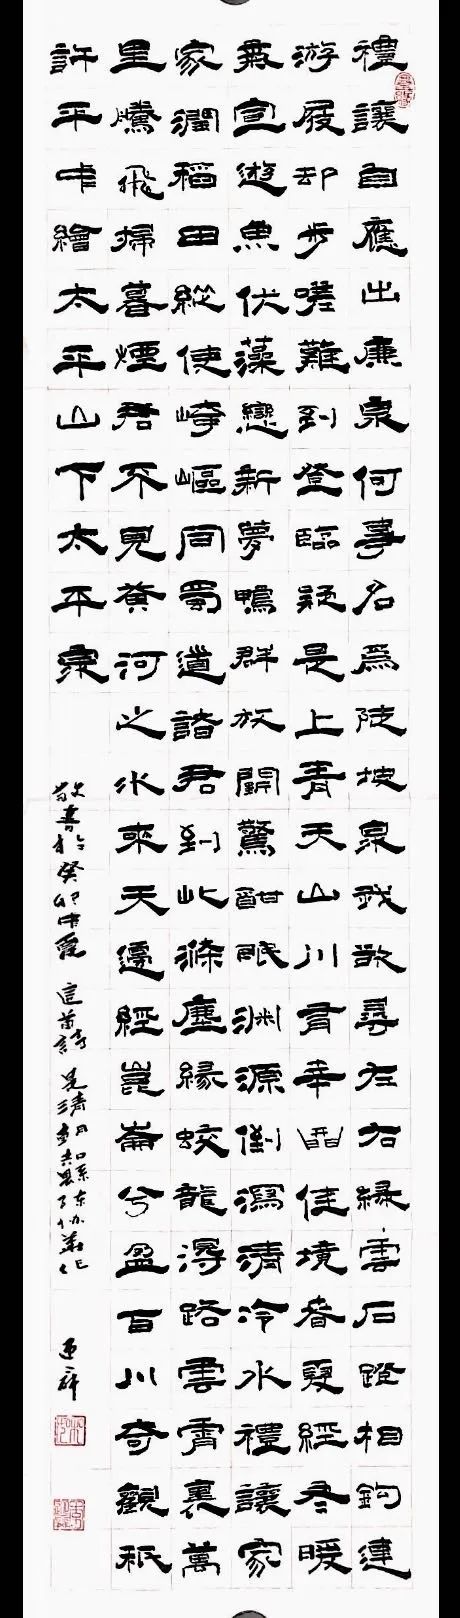 禮讓自應出廉泉何事名為陡坡泉我尋左右緣雲石磴相鈎連
游屐却步嗟難到登臨疑是上青天山川有幸留佳境春夏經冬暖
無宣遊魚伏藻戀新夢鴨群放鬧驚酣眠淵源倒瀉清冷水禮讓家
家潤稻田縱使崎嶇同蜀道諸君到此滌塵緣蛟龍得路雲霄裏萬
里騰飛掃暮煙君不見黃河之水來天邊經崑崙兮盈百川奇觀秖
許平中繪太平山下太平泉
敬書於癸卯 這首詩